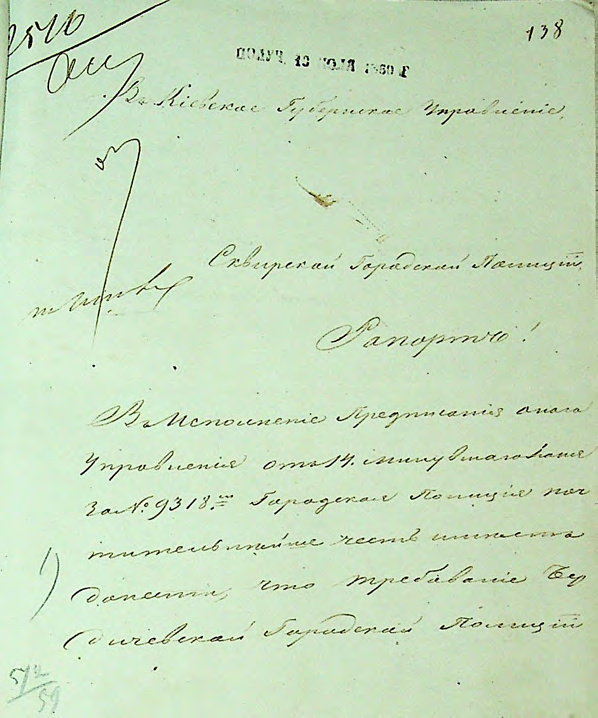 2510
138
ПОЛУЧ. 13 ІЮЛЯ 1860 Г
Въ Кіевское Губернское Управленіе.
Сквирской Городской Полиціи
Рапортъ!
Въ Исполненіе Предписанія онаго
Управленія отъ 14. минувшаго Іюня
За № 9318.мъ Городская Полиція поч
тительнѣйше честь имѣетъ
донести, что требованіе Бер
дичевской Городской Полиціи
1)
572/59